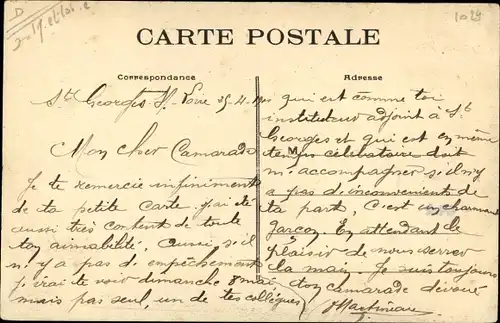 D
1029
CARTE POSTALE
Correspondance
Adresse
St Georges s/ Loire 25-4-
Mon cher Camarade
Je te remercie infiniment
de ta petite carte. J'ai été
aussi très content de toute
ton aimabilité. Aussi, s'il
n'y a pas d'empêchement
j'irai te voir dimanche 8 mai,
mais pas seul, un de tes collègues
qui est comme toi
instituteur adjoint à St
Georges et qui est en même
temps célibataire doit
M
m'accompagner s'il n'y
a pas d'inconvenients de
ta part, C'est un charmant
garçon. En attendant le
plaisir de nous serrer
la main, Je suis toujours
ton camarade dévoué
Martineau